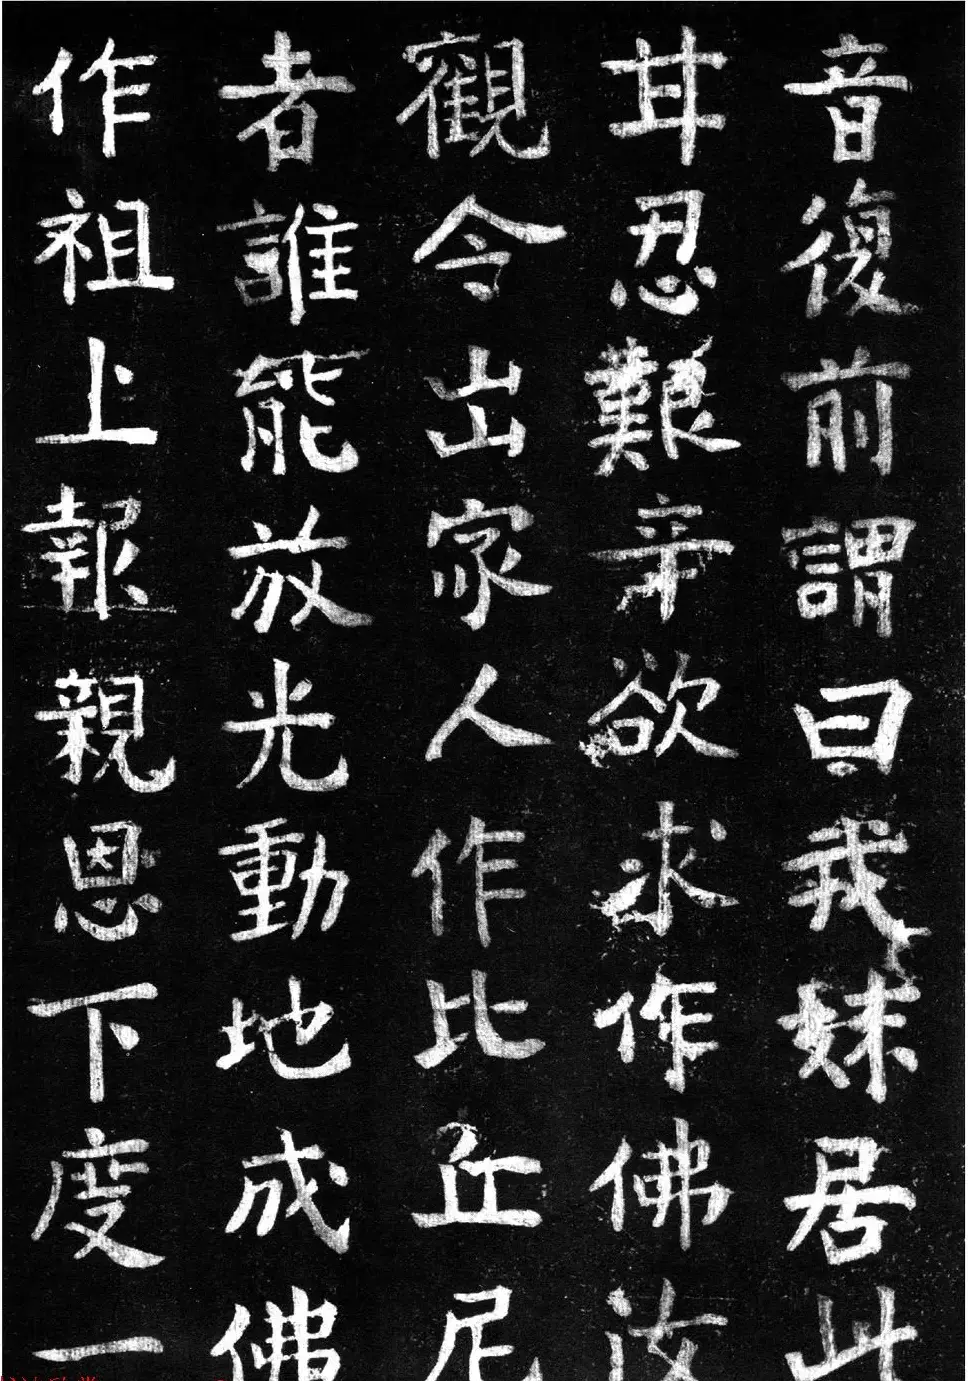 音復前謂曰我妹居此
甘忍艱辛欲求作佛汝
觀令出家人作比丘尼
者誰能放光動地成佛
作祖上報親恩下度一